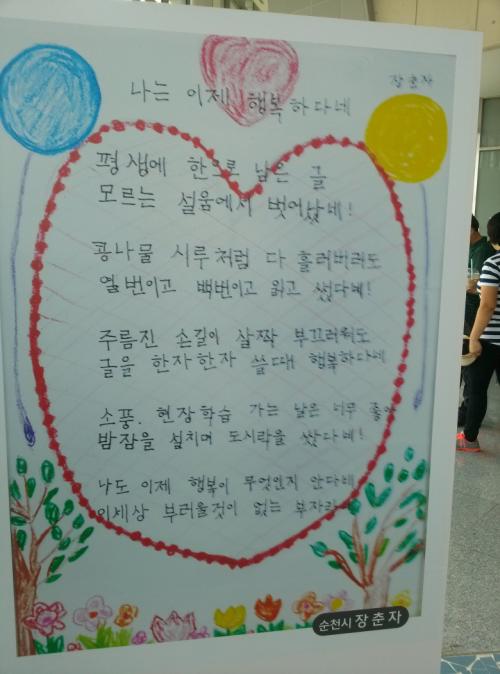 나는 이제 행복하다네
장춘자
평생에 한으로 남은 글
모르는 설움에서 벗어났네!
콩나물 시루처럼 다 흘러버려도
열번이고 백번이고 읽고 썼다네!
주름진 손길이 살짝 부끄러워도
글을 한자한자 쓸때 행복하다네
소풍. 현장학습 가는 날은 너무 좋아
밤잠을 설치며 도시락을 쌌다네!
나도 이제 행복이 무엇인지 안다네
이세상 부러울것이 없는 부자라네
순천시 장춘자